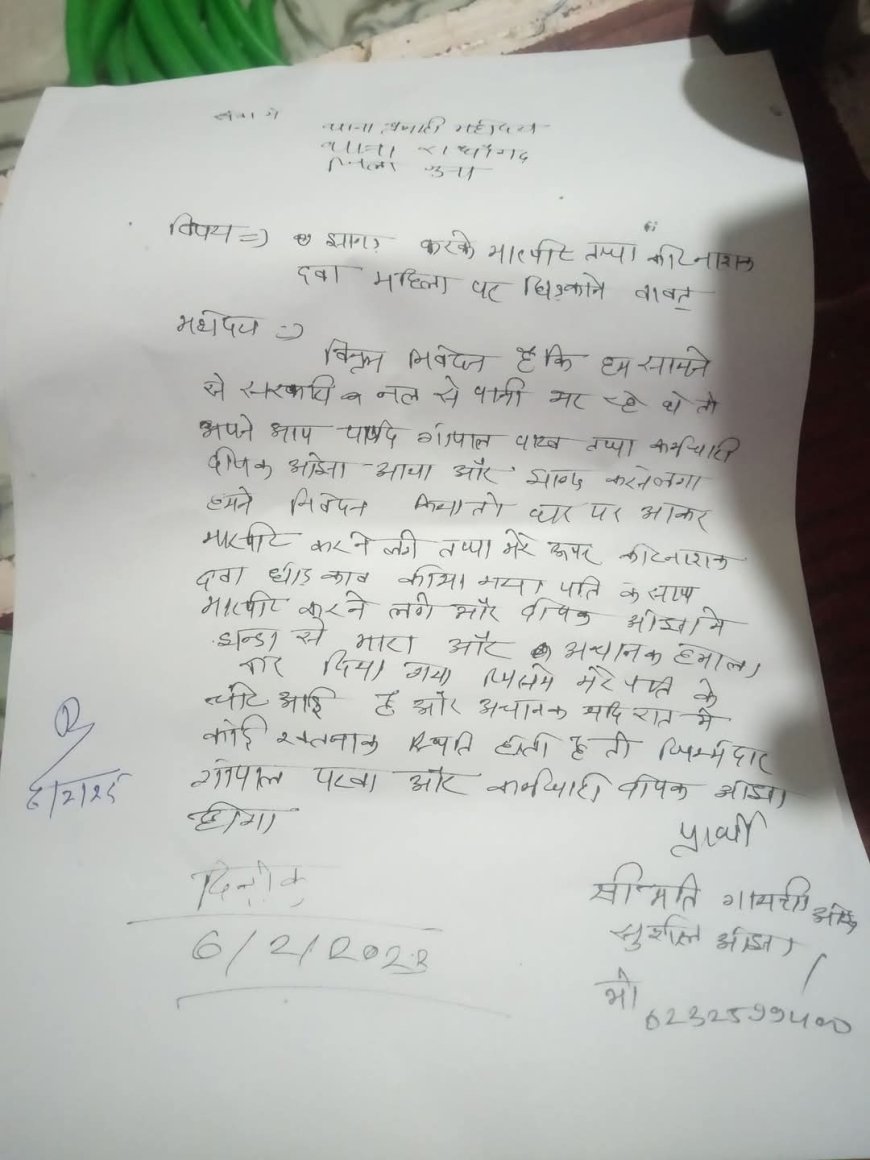 सेवा में
थाना प्रभारी महोदय
थाना राघौगढ
जिला गुना
विषय => झगड़ा करके मारपीट तथा कीटनाशक
दवा महिला पर छिड़काने बावत्
महोदय =>
विनम्र निवेदन है कि हम सामने
से सरकारी नल से पानी भर रहे थे तो
अपने आप पार्षद गोपाल तथा कर्मचारी
दीपक ओझा आया और झगड़ करने लगा
हमने निवेदन किया तो घर पर आकर
मारपीट करने लगे तथा मेरे ऊपर कीटनाशक
दवा छीड़काव कीया गया पति के साथ
मारपीट करने लगे और दीपक ओझा ने
डन्डा से मारा और अचानक हमला
कर दिया गया जिसमे मेरे पति के
चोट आई है और अचानक यदि रात मे
कोई खतनाक स्थिति होती है तो जिम्मेदार
गोपाल और कर्मचारी दीपक ओझा
होगा
प्रार्थी
दिनांक
6/2/2023
श्रीमति गायत्री ओझा
सुशील ओझा
मो
6232599400